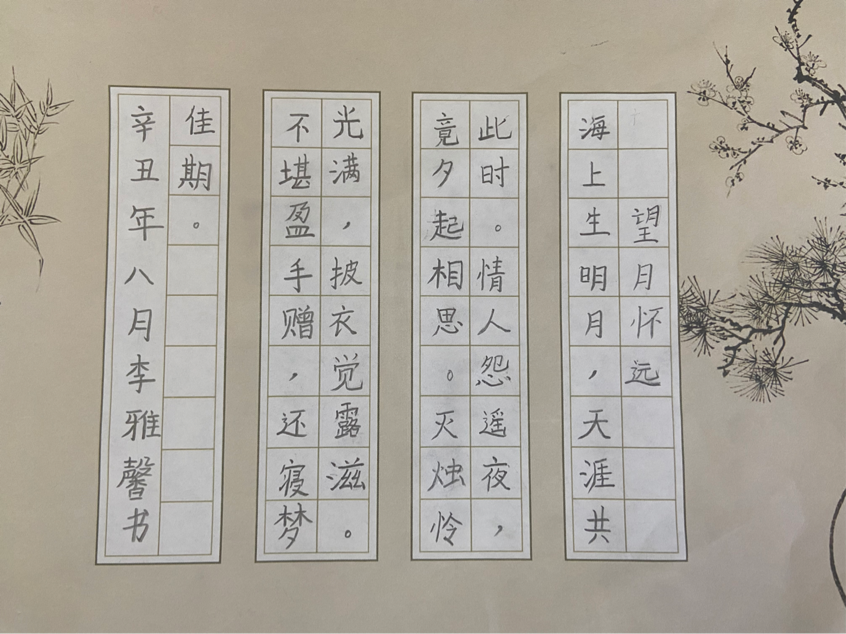 望月怀远
海上生明月，天涯共
此时。情人怨遥夜，
竟夕起相思。灭烛怜
光满，披衣觉露滋。
不堪盈手赠，还寝梦
佳期。
辛丑年八月李雅馨书